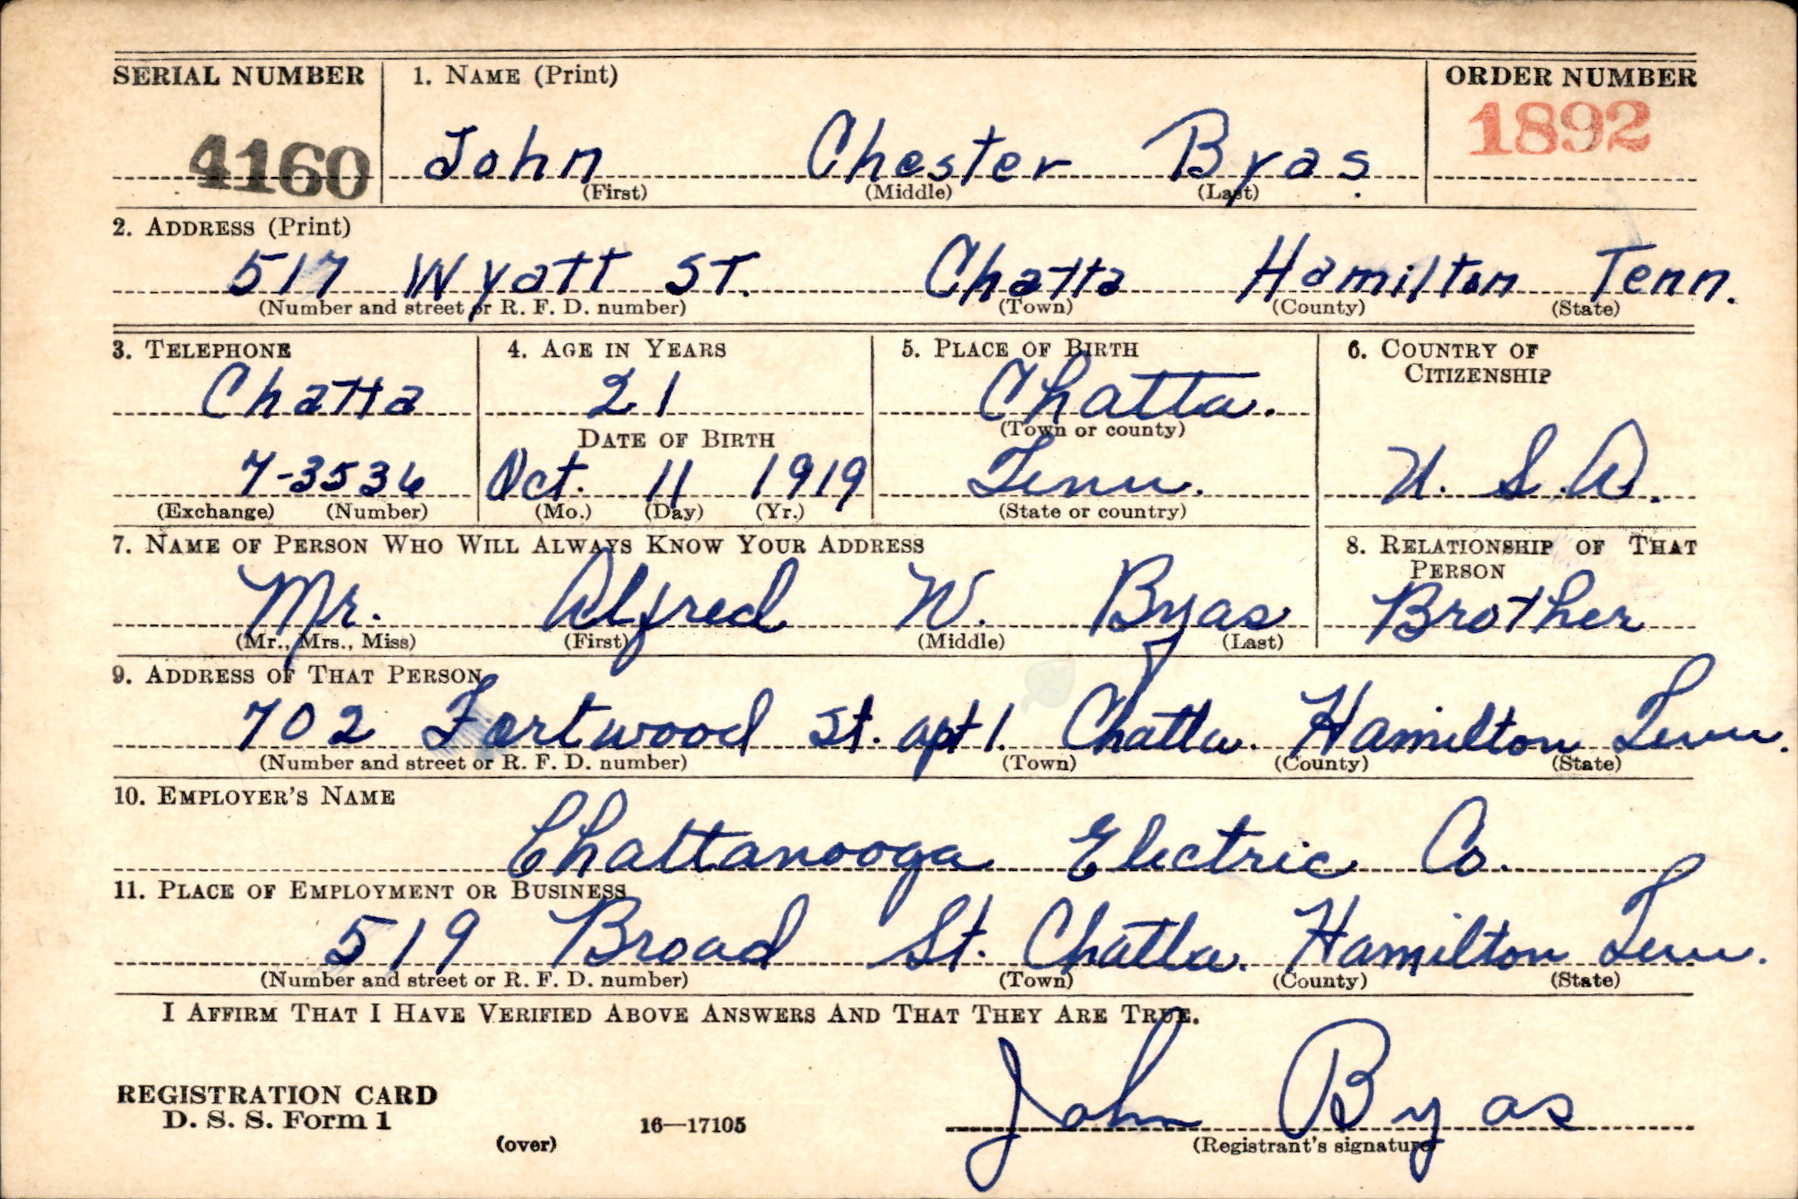 SERIAL NUMBER 1. NAME (Print) ORDER NUMBER
4160 John Chester Byas. 1892
(First) (Middle) (Last)
2. ADDRESS (Print)
517 Wyatt ST. Chatta Hamilton Tenn.
(Number and street or R. F. D. number) (Town) (County) (State)
3. TELEPHONE 4. AGE IN YEARS 5. PLACE OF BIRTH 6. COUNTRY OF CITIZENSHIP
Chatta 21 Chatta.
DATE OF BIRTH (Town or county)
7-3536 Oct. 11 1919 Tenn. U. S. A.
(Exchange) (Number) (Mo.) (Day) (Yr.) (State or country)
7. NAME OF PERSON WHO WILL ALWAYS KNOW YOUR ADDRESS 8. RELATIONSHIP OF THAT PERSON
Mr. Alfred W. Byas Brother
(Mr., Mrs., Miss) (First) (Middle) (Last)
9. ADDRESS OF THAT PERSON
702 Fortwood St. apt 1. Chatta. Hamilton Tenn.
(Number and street or R. F. D. number) (Town) (County) (State)
10. EMPLOYER'S NAME
Chattanooga Electric Co.
11. PLACE OF EMPLOYMENT OR BUSINESS
519 Broad St. Chatta. Hamilton Tenn.
(Number and street or R. F. D. number) (Town) (County) (State)
I AFFIRM THAT I HAVE VERIFIED ABOVE ANSWERS AND THAT THEY ARE TRUE.
REGISTRATION CARD
D. S. S. Form 1 16—17105 John Byas
(over) (Registrant's signature)